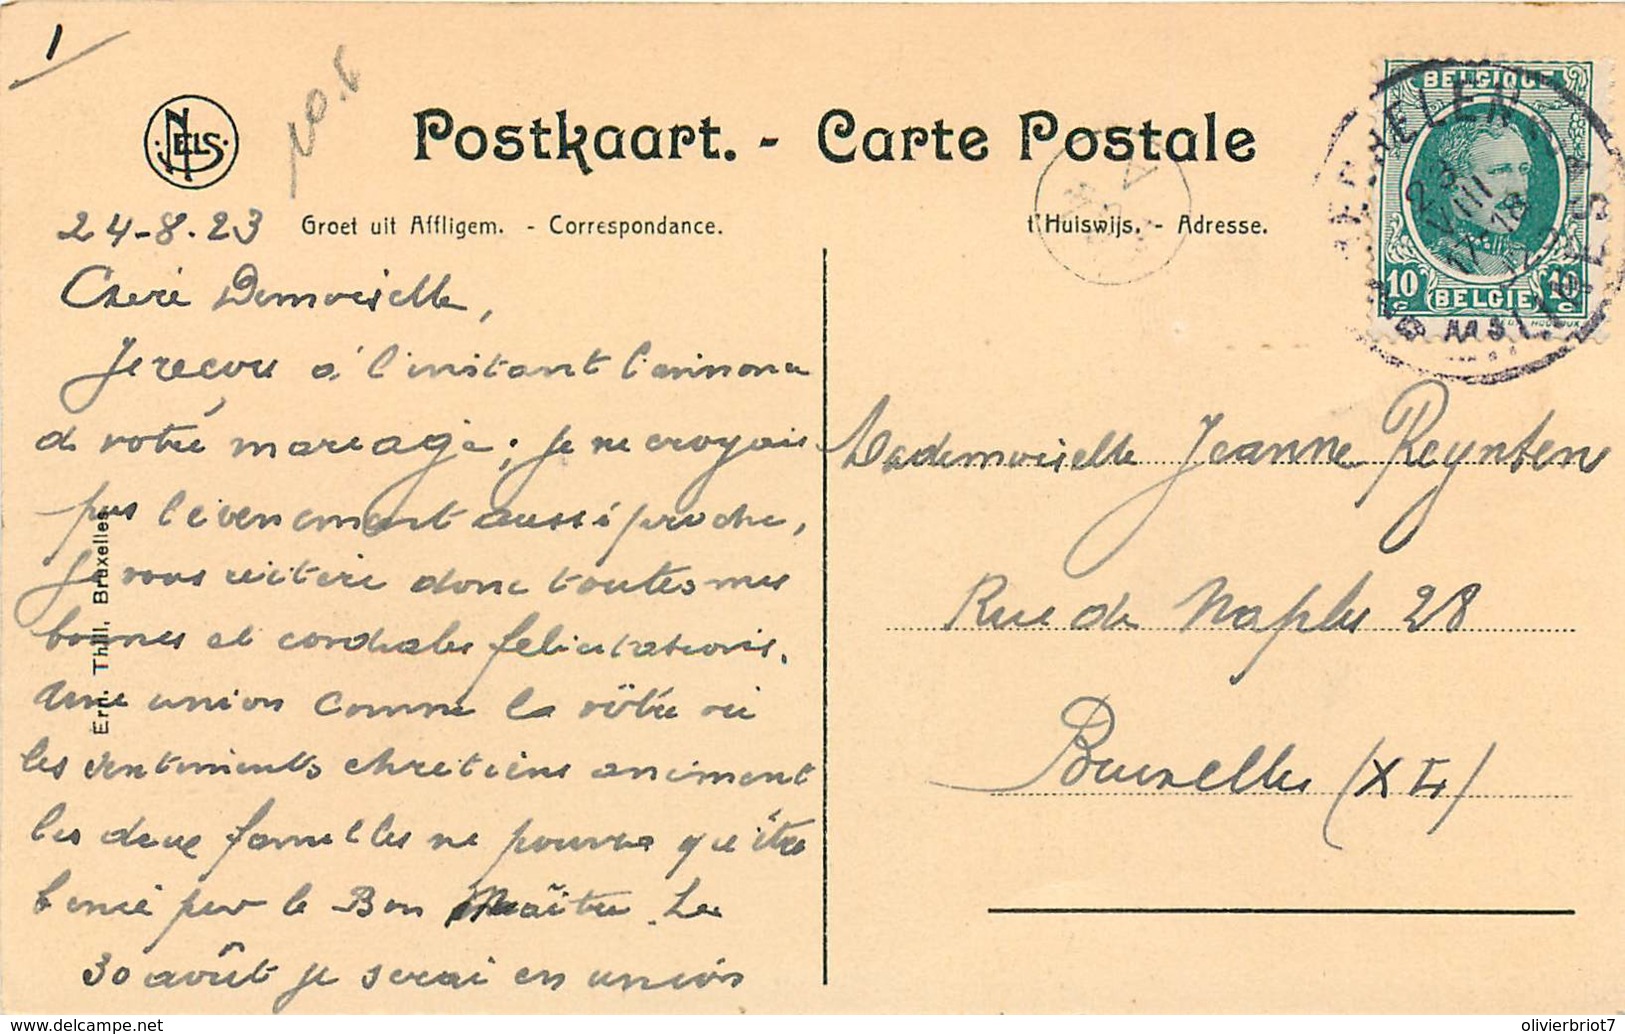 1
No. 6
NELS
Postkaart. - Carte Postale
24-8-23
Groet uit Affligem. - Correspondance.
t'Huiswijs. - Adresse.
BELGIQUE
10 c
BELGIË
10 c
23
VIII
17-18
1923
BRUXELLES
Chere Demoiselle,
Je recois à l'instant l'annonce
de votre mareage; je ne croyais
pas l'evenement aussi proche,
Je vous reitere donc toutes mes
bonnes et cordiales felicitations.
Une union comme la vôtre où
les sentiments chretiens animent
les deux familles ne pourra que être
benie par le Bon Maître. Le
30 août je serai en union
Ern. Thill, Bruxelles
Mademoiselle Jeanne Reyntens
Rue de Naples 28
Bruxelles (XL)
delcampe.net
olivierbriot7